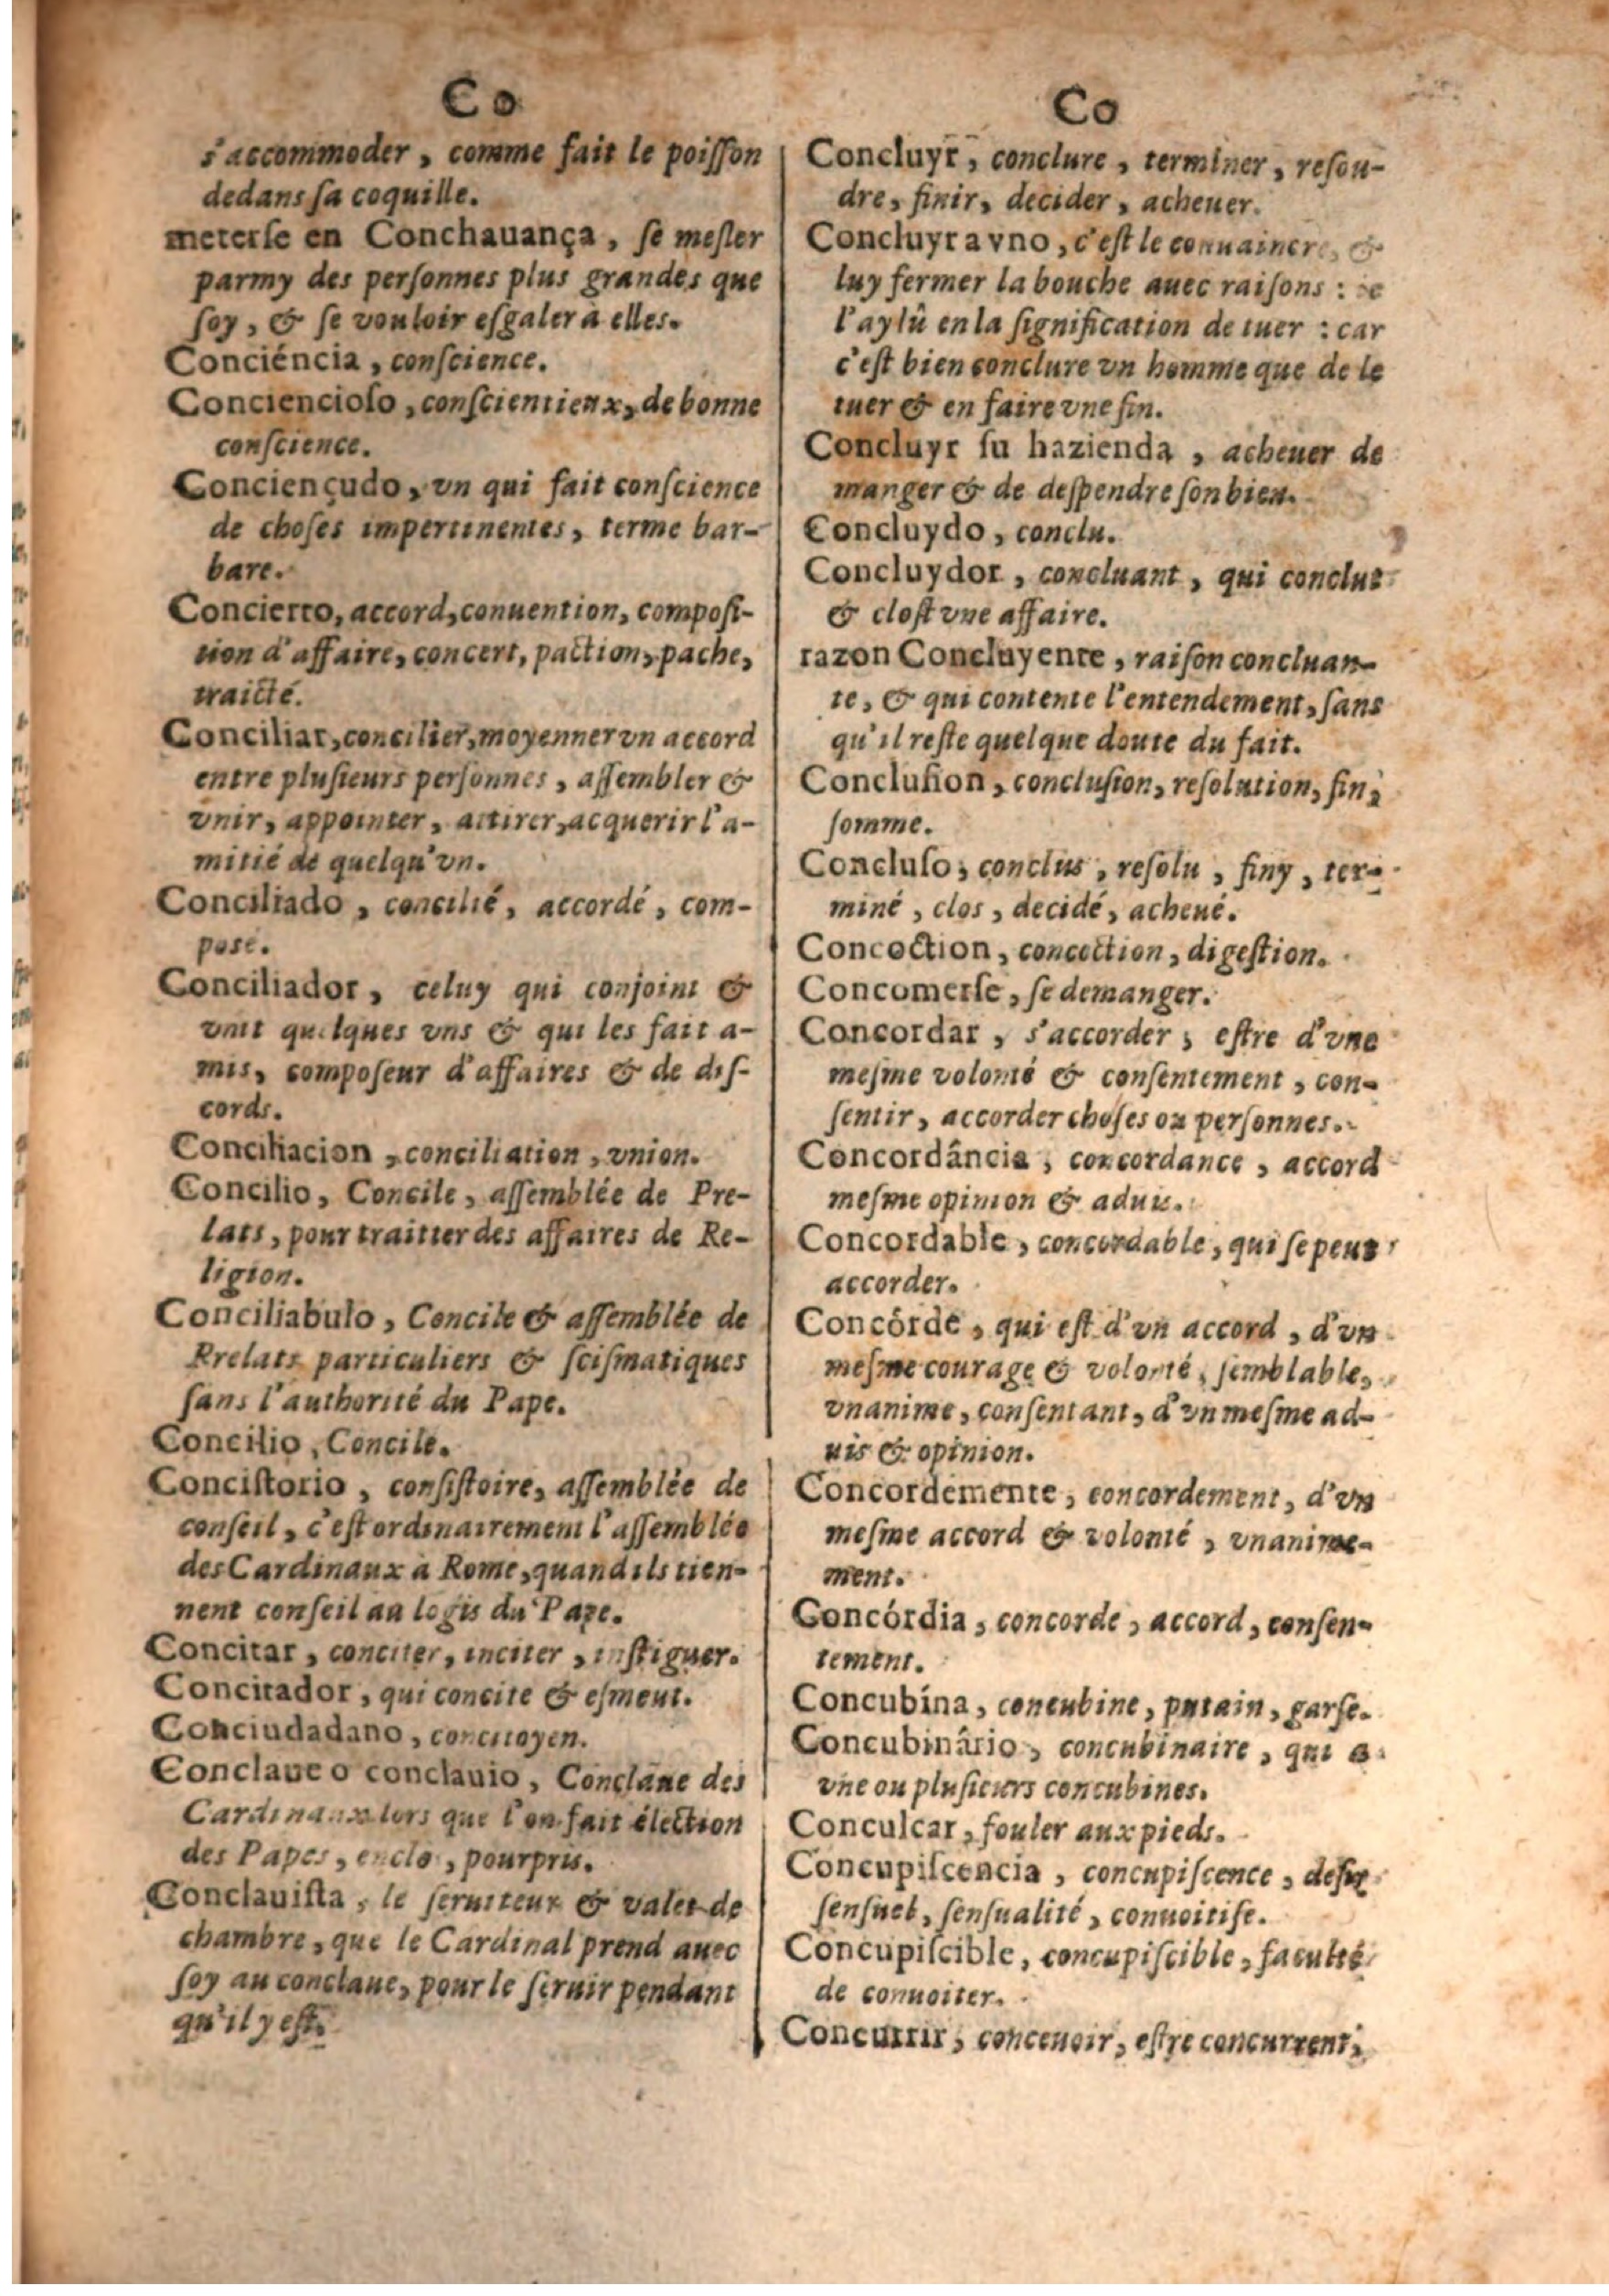 Co
s'accommoder, comme fait le poiſſon
dedans ſa coquille.
meterſe en Conchauança, ſe meſler
parmy des perſonnes plus grandes que
ſoy, & ſe vouloir eſgaler à elles.
Conciéncia, conſcience.
Conciencioſo, conſcientieux, de bonne
conſcience.
Conciençudo, vn qui fait conſcience
de choſes impertinentes, terme bar-
bare.
Concierto, accord, conuention, compoſi-
tion d'affaire, concert, paction, pache,
traicté.
Conciliar, concilier, moyenner vn accord
entre pluſieurs perſonnes, aſſembler &
vnir, appointer, attirer, acquerir l'a-
mitié de quelqu'vn.
Conciliado, concilié, accordé, com-
posé.
Conciliador, celuy qui conjoint &
vnit quelques vns & qui les fait a-
mis, compoſeur d'affaires & de diſ-
cords.
Conciliacion, conciliation, vnion.
Concilio, Concile, aſſemblée de Pre-
lats, pour traitter des affaires de Re-
ligion.
Conciliabulo, Concile & aſſemblée de
Prelats particuliers & ſciſmatiques
ſans l'authorité du Pape.
Concilio, Concile.
Conciſtorio, conſiſtoire, aſſemblée de
conſeil, c'eſt ordinairement l'aſſemblée
des Cardinaux à Rome, quand ils tien-
nent conſeil au logis du Pape.
Concitar, conciter, inciter, inſtiguer.
Concitador, qui concite & eſmeut.
Conciudadano, concitoyen.
Conclaue o conclauio, Conclaue des
Cardinaux lors que l'on fait élection
des Papes, enclos, pourpris.
Conclauiſta, le ſeruiteur & valet de
chambre, que le Cardinal prend auec
ſoy au conclaue, pour le ſeruir pendant
qu'il y eſt.
Co
Concluyr, conclure, terminer, reſou-
dre, finir, decider, acheuer.
Concluyr a vno, c'eſt le conuaincre, &
luy fermer la bouche auec raiſons : ie
l'ay lû en la ſignification de tuer : car
c'eſt bien conclure vn homme que de le
tuer & en faire vne fin.
Concluyr ſu hazienda, acheuer de
manger & de deſpendre ſon bien.
Concluydo, conclu.
Concluydor, concluant, qui conclut
& cloſt vne affaire.
razon Concluyente, raiſon concluan-
te, & qui contente l'entendement, ſans
qu'il reſte quelque doute du fait.
Concluſion, concluſion, reſolution, fin,
ſomme.
Concluſo, conclus, reſolu, finy, ter-
miné, clos, decidé, acheué.
Concoction, concoction, digeſtion.
Concomerſe, ſe demanger.
Concordar, s'accorder, eſtre d'vne
meſme volonté & conſentement, con-
ſentir, accorder choſes ou perſonnes.
Concordância, concordance, accord
meſme opinion & aduis.
Concordable, concordable, qui ſe peut
accorder.
Concórde, qui eſt d'vn accord, d'vn
meſme courage & volonté, ſemblable,
vnanime, conſentant, d'vn meſme ad-
uis & opinion.
Concordemente, concordement, d'vn
meſme accord & volonté, vnanime-
ment.
Concórdia, concorde, accord, conſen-
tement.
Concubína, concubine, putain, garſe.
Concubinârio, concubinaire, qui a
vne ou pluſieurs concubines.
Conculcar, fouler aux pieds.
Concupiſcencia, concupiſcence, deſir
ſenſuel, ſenſualité, conuoitiſe.
Concupiſcible, concupiſcible, faculté
de conuoiter.
Concurrir, conceuoir, eſtre concurrent,